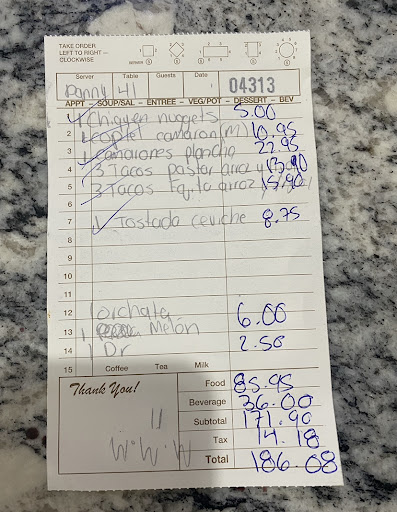 TAKE ORDER
LEFT TO RIGHT —
CLOCKWISE
Server Table Guests Date
Danny 41 04313
APPT – SOUP/SAL – ENTREE – VEG/POT – DESSERT – BEV
1 chicken nuggets 5.00
2 1 coctel camaron (M) 10.95
3 1 camarones plancha 22.95
4 3 Tacos pastor arroz y 13.90
5 3 Tacos arroz 15.90
6
7 1 Tostada ceviche 8.75
8
9
10
11
12 1 orchata 6.00
13 1 Melón
14 1 Dr 2.50
15 Coffee Tea Milk
Thank You!
Food 85.95
Beverage 36.00
Subtotal 171.90
Tax 14.18
Total 186.08
11
W.W.W